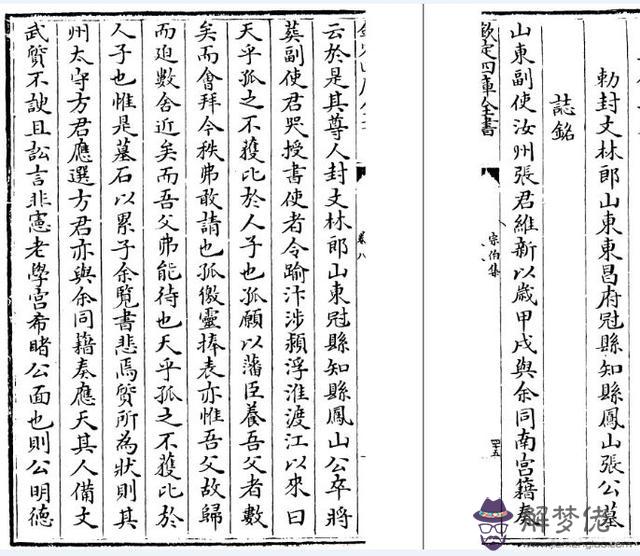 勅封文林郎山東東昌府冠縣知縣鳳山張公墓
誌銘
山東副使汝州張君維新以歲甲戌與余同南宫籍奏
欽定四庫全書
宗伯集
四十五
卷八
云於是其尊人封文林郎山東冠縣知縣鳳山公卒將
葬副使君哭授書使者令踰汴涉潁浮淮渡江以來曰
天乎孤之不獲比於人子也孤願以藩臣養吾父者數
矣而會拜今秩弗敢請也孤徼靈捧表亦惟吾父故歸
而迫數舍近矣而吾父弗能待也天乎孤之不獲比於
人子也惟是墓石以累子余覽書悲焉質所為狀則其
州太守方君應選方君亦與余同籍奏應天其人備文
武質不諛且訟言非憲老學宫希睹公面也則公明德
解梦佬